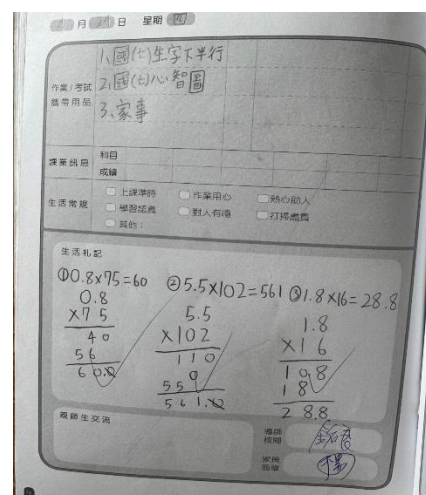 月 日 星期 四
作業/考試
攜帶用品
1、國(七)生字下半行
2、國(七)心智圖
3、家事
課業訊息
科目
成績
生活常規
上課準時 作業用心 熱心助人
學習認真 對人有禮 打掃盡責
其他：
生活札記
①0.8×75=60 ②5.5×102=561 ③1.8×16=28.8
0.8 5.5 1.8
×75 ×102 ×16
40 110 108
56 0 18
60.0 55 28.8
561.0
親師生交流
導師
核閱
家長
簽章
楊